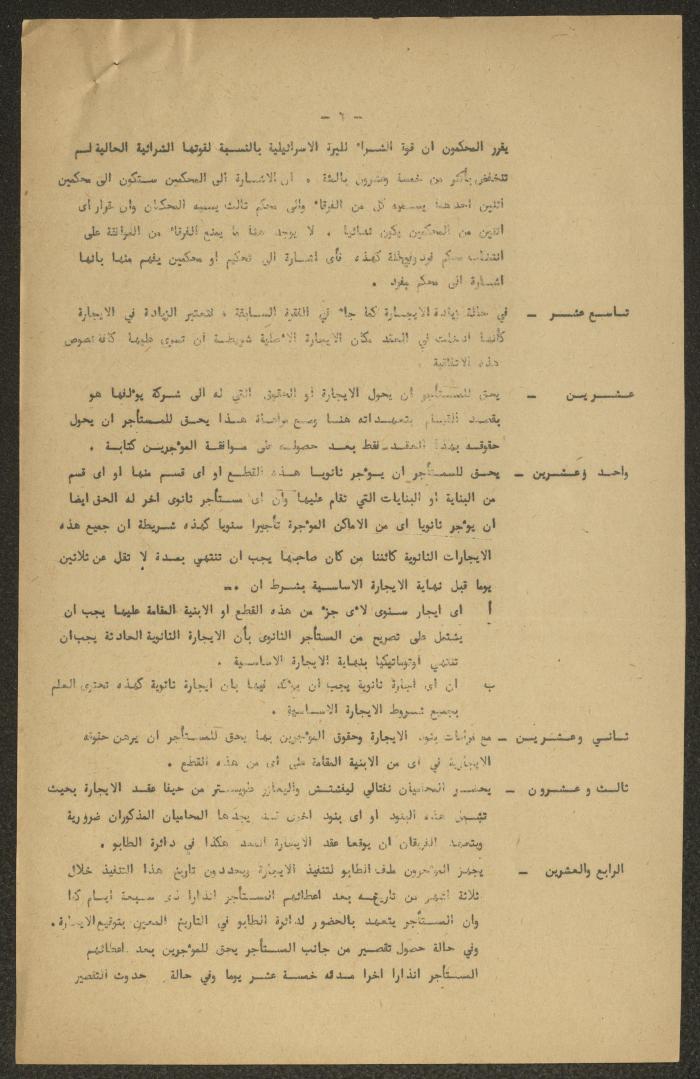 - ٦ -
يقرر المحكمون ان قوة الشراء لليرة الاسرائيلية بالنسبة لقوتها الشرائية الحالية لم
تنخفض بأكثر من خمسة وعشرون بالمئة . ان الاشارة الى المحكمين ستكون الى محكمين
اثنين احدهما يسميه كل من الفرقاء والى محكم ثالث يسميه المحكمان وان قرار اى
اثنين من المحكمين يكون نهائيا . لا يوجد هنا ما يمنع الفرقاء من الموافقة على
انتخاب محكم فرد كهذه فأى اشارة الى تحكيم او محكمين يفهم منها بانها
اشارة الى محكم مفرد .
تاسع عشر - في حالة زيادة الايجارة كما جاء في الفقرة السابقة ، فتعتبر الزيادة في الايجارة
كأنها ادخلت في العقد مكان الايجارة الاصلية شريطة ان تسرى عليها كافة نصوص
هذه الاتفاقية
عشرين - يحق للمستأجر ان يحول الايجارة او الحقوق التي له الى شركة يؤلفها هو
بقصد القيام بتعهداته هنا ومع مراعاة هذا يحق للمستأجر ان يحول
حقوقه بهذا العقد فقط بعد حصوله على موافقة المؤجرين كتابة .
واحد وعشرين - يحق للمستأجر ان يؤجر ثانويا هذه القطع او اى قسم منها او اى قسم
من البناية او البنايات التي تقام عليها وان اى مستأجر ثانوى اخر له الحق ايضا
ان يؤجر ثانويا اى من الاماكن المؤجرة تأجيرا سنويا كهذه شريطة ان جميع هذه
الايجارات الثانوية كائنا من كان صاحبها يجب ان تنتهي بمدة لا تقل عن ثلاثين
يوما قبل نهاية الايجارة الاساسية بشرط ان .-
أ اى ايجار سنوى لاى جزء من هذه القطع او الابنية المقامة عليها يجب ان
يشتمل على تصريح من المستأجر الثانوى بأن الايجارة الثانوية الحادثة يجب ان
تنتهي اوتوماتيكيا بنهاية الايجارة الاساسية .
ب ان اى اجارة ثانوية يجب ان فيها بان ايجارة ثانوية كهذه تحتوى العلم
بجميع شروط الايجارة الاساسية .
ثاني وعشرين - مع مراعات بنود الايجارة وحقوق المؤجرين بها يحق للمستأجر ان يرهن حقوقه
الايجارية في اى من الابنية المقامة على اى من هذه القطع .
ثالث وعشرون - يحضر المحاميان نفتالي ليفشتش واليعازر طويستر من حيفا عقد الايجارة بحيث
تشمل هذه البنود او اى بنود اخرى قد يجدها المحاميان المذكوران ضرورية
ويتعهد الفريقان ان يوقعا عقد الايجارة المعد هكذا في دائرة الطابو .
الرابع والعشرين - يجهز المؤجرون ملف الطابو لتنفيذ الايجارة ويحددون تاريخ هذا التنفيذ خلال
ثلاثة اشهر من تاريخه بعد اعطائهم المستأجر انذارا ذى سبعة ايام كما
وان المستأجر يتعهد بالحضور لدائرة الطابو في التاريخ المعين بتوقيع الايجارة .
وفي حالة حصول تقصير من جانب المستأجر يحق للمؤجرين بعد اعطائهم
المستأجر انذارا اخرا مدته خمسة عشر يوما وفي حالة حدوث التقصير